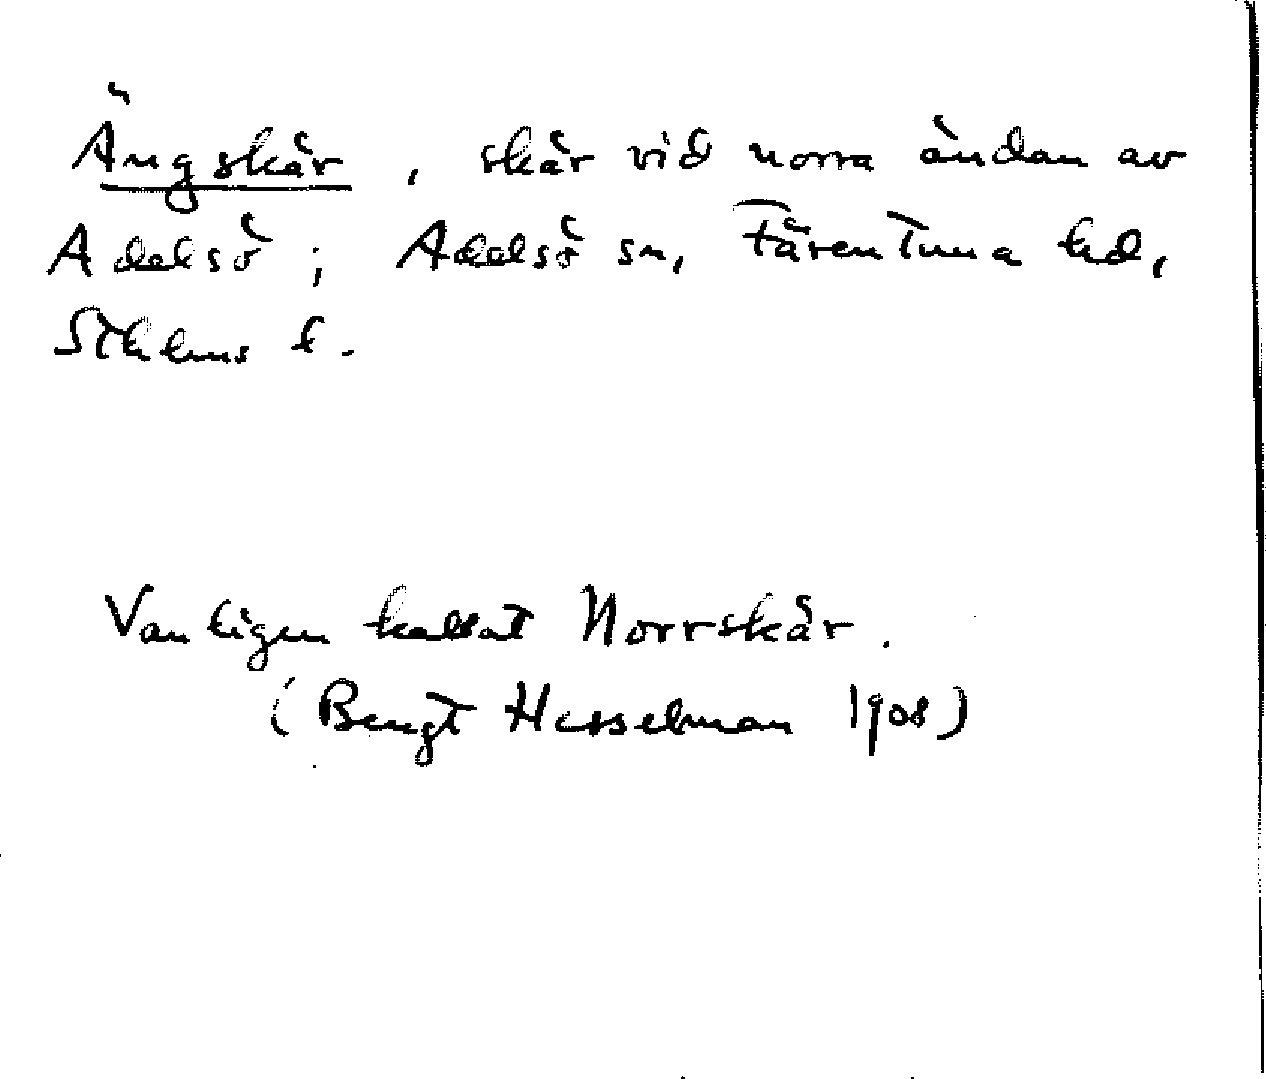 Ängskär, skär vid norra ändan av
Adelsö; Adelsö sn, Färentuna hd,
Sthlms l.
Vanligen kallat Norrskär.
(Bengt Hesselman 1908)